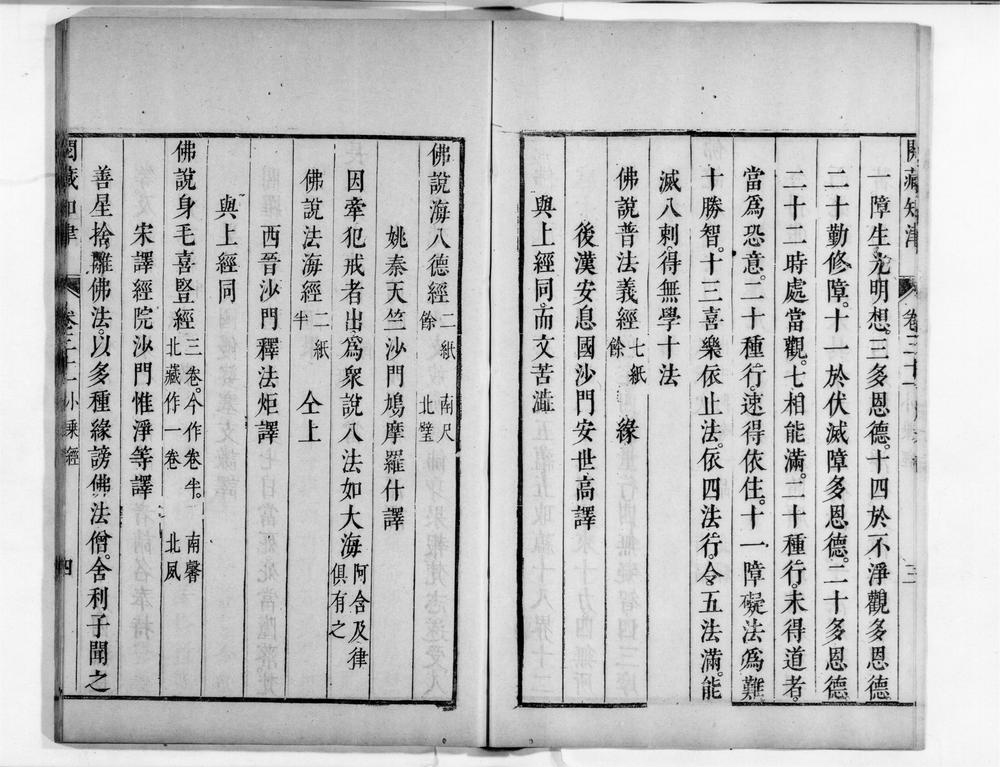 閱藏知津 卷三十一 小乘經 三
一障生光明想。三多恩德。十四於不淨觀多恩德
二十勤修障。十一於伏滅障多恩德。二十多恩德
二十二時處當觀。七相能滿。二十種行。未得道者。
當爲恐意。二十種行。速得依住。十一障礙法爲難。
十勝智。十三喜樂依止法。依四法行。令五法滿。能
滅八刺。得無學十法
佛說普法義經 七紙餘 緣
後漢安息國沙門安世高譯
與上經同。而文苦澁
佛說海八德經 二紙餘 南尺 北璧
姚秦天竺沙門鳩摩羅什譯
因牽犯戒者出。爲衆說八法如大海 阿含及律俱有之
佛說法海經 二紙半 仝上
西晉沙門釋法炬譯
與上經同
佛說身毛喜豎經 三卷。今作卷半。北藏作一卷 南馨 北夙
宋譯經院沙門惟淨等譯
善星捨離佛法。以多種緣。謗佛法僧。舍利子聞之
閱藏知津 卷三十一 小乘經 四